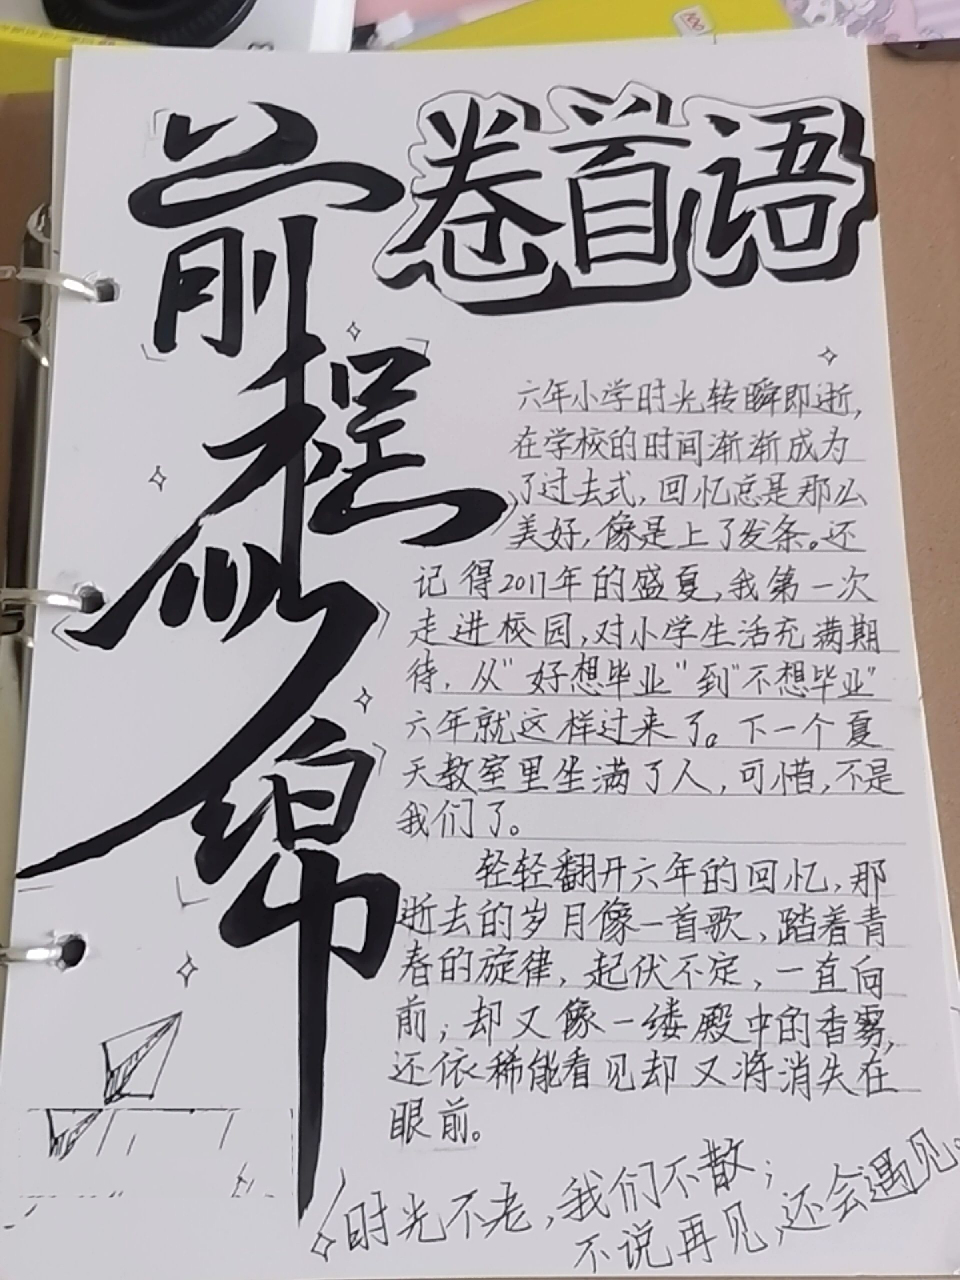 前程似锦
卷首语
六年小学时光转瞬即逝,
在学校的时间渐渐成为
了过去式,回忆总是那么
美好,像是上了发条。还
记得2017年的盛夏,我第一次
走进校园,对小学生活充满期
待,从“好想毕业”到“不想毕业”
六年就这样过来了。下一个夏
天教室里坐满了人,可惜,不是
我们了。
轻轻翻开六年的回忆,那
逝去的岁月像一首歌,踏着青
春的旋律,起伏不定,一直向
前;却又像一缕殿中的香雾,
还依稀能看见却又将消失在
眼前。
时光不老,我们不散;
不说再见,还会遇见。